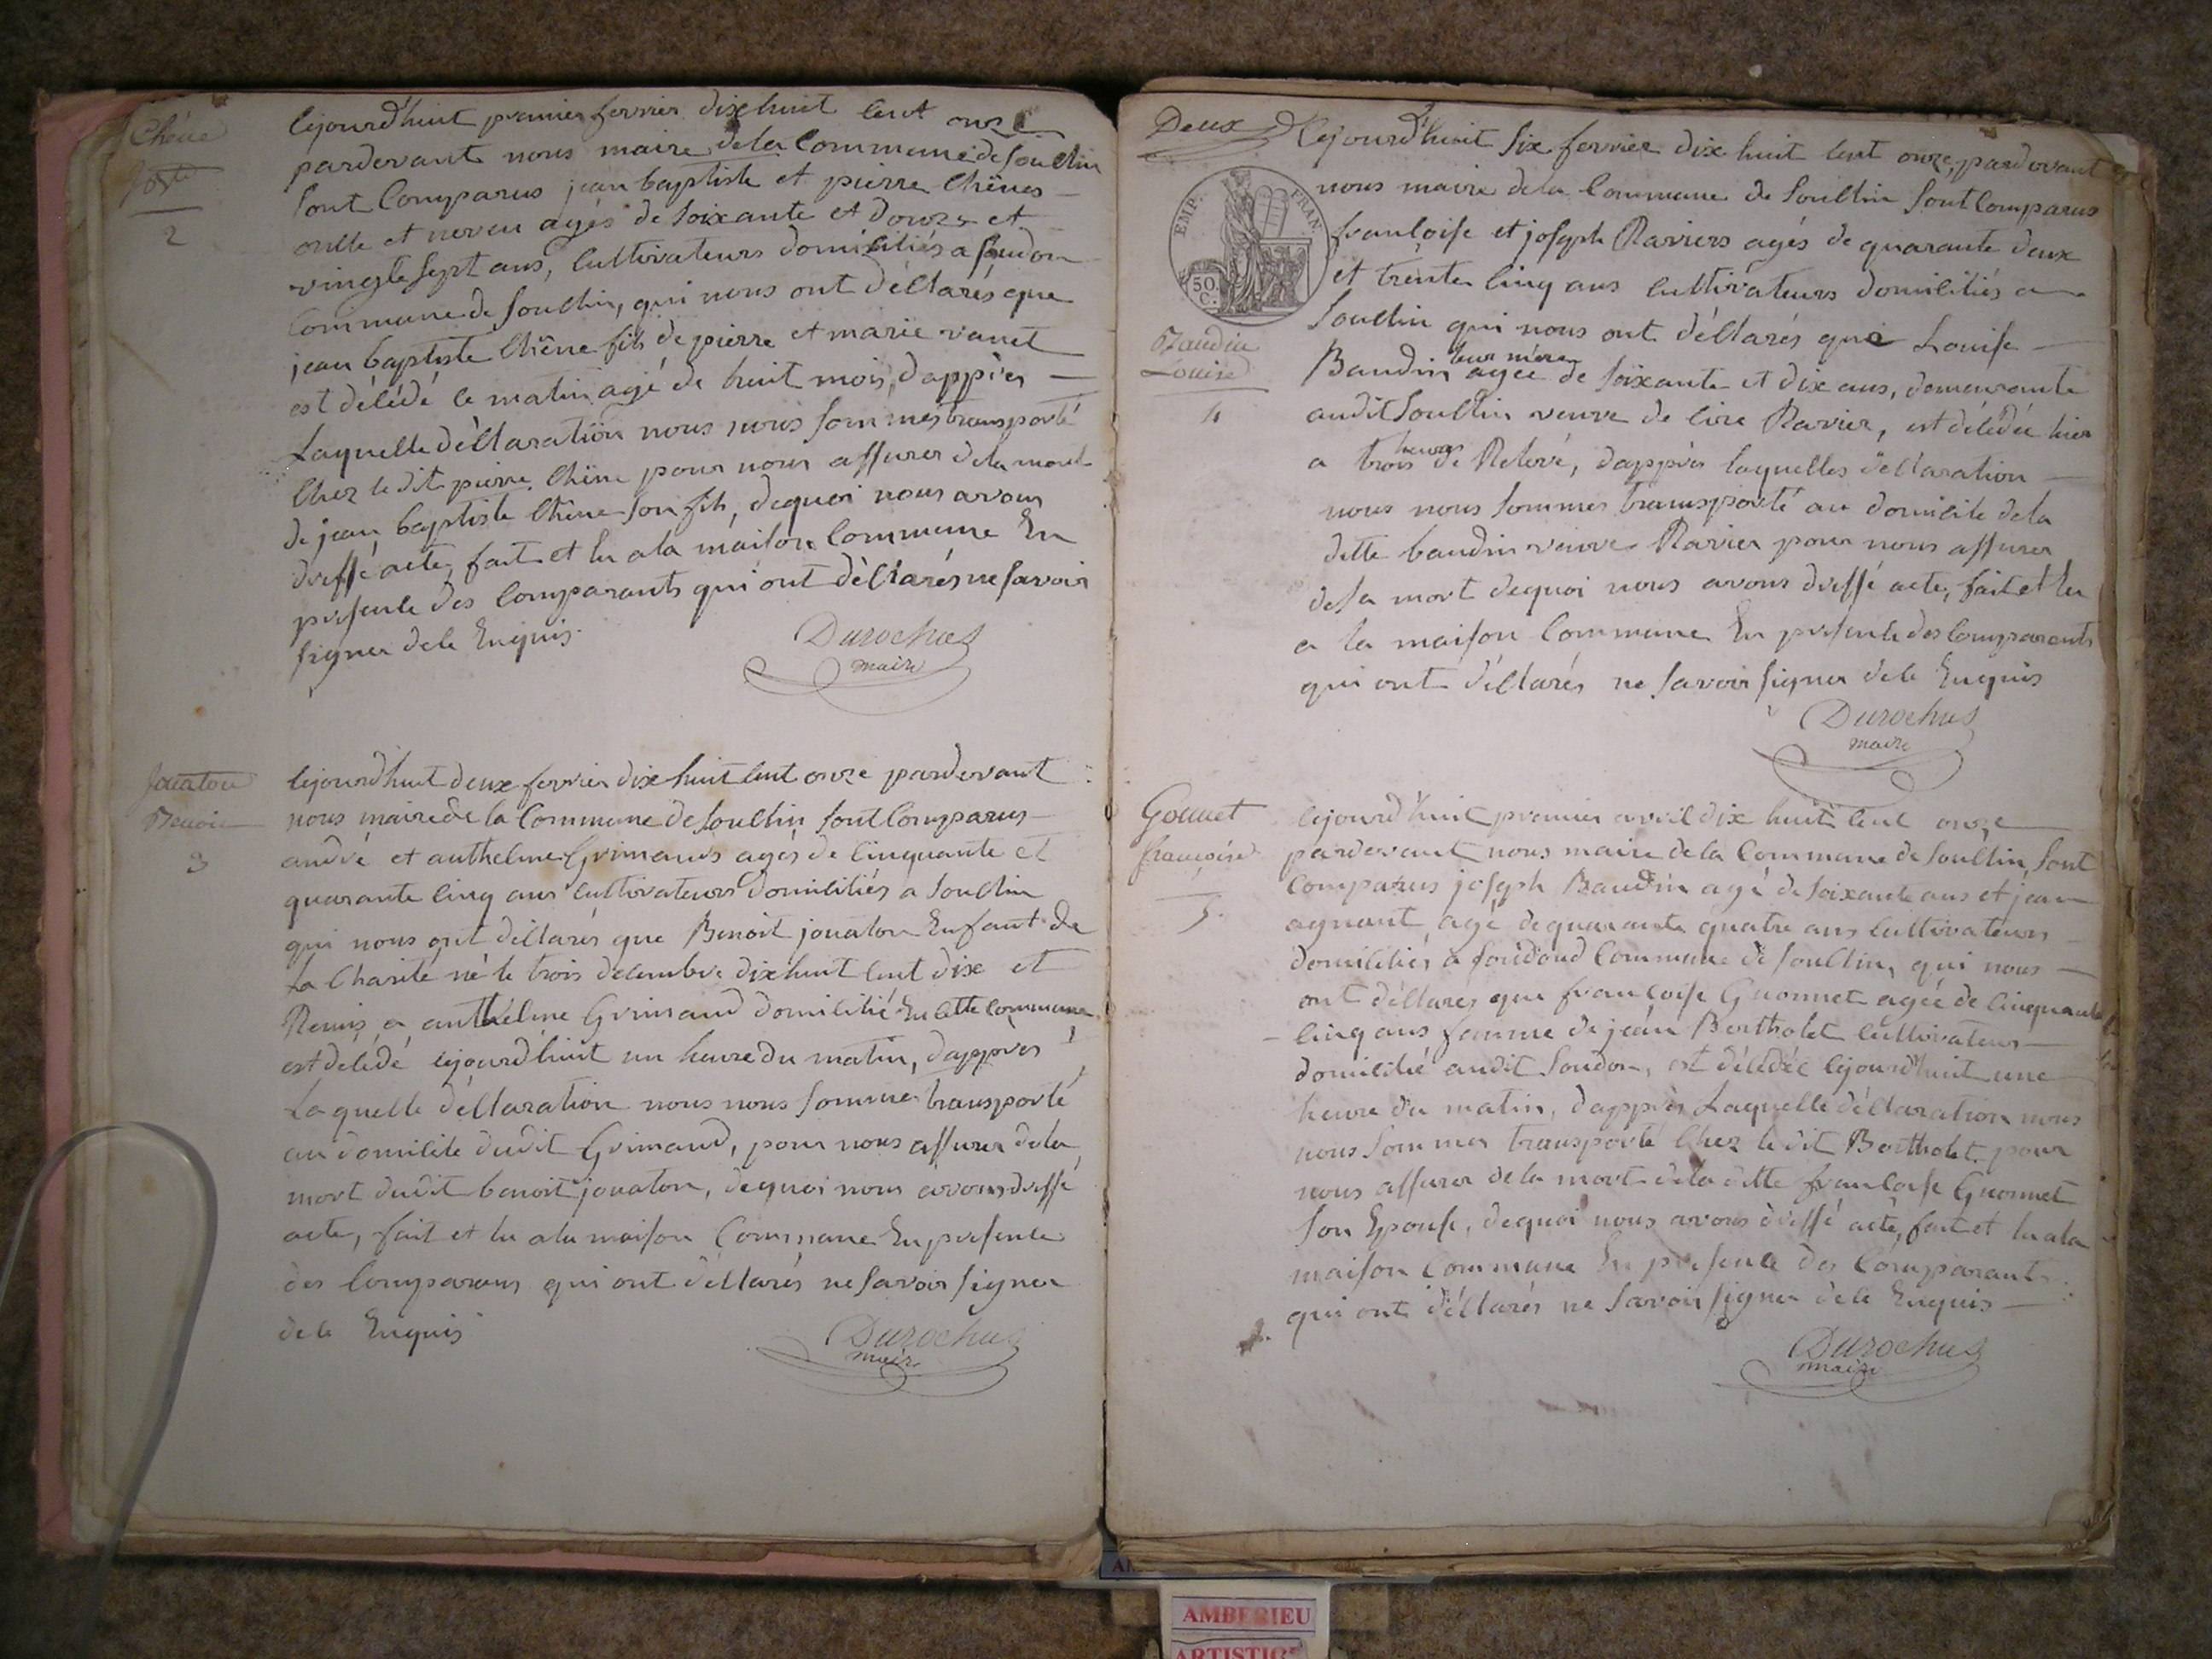 Chêne
2
Cejourd'huit premier fevrier dix huit cent onze
pardevants nous maire de la Commune de Souclin
sont Comparus jean baptiste et pierre Chênes
oncle et neveu agés de soixante et douze et
vingte sept ans, Cultivateurs domiciliés a soudon
Commune de Souclin, qui nous ont déclarés que
jean baptiste Chêne fils de pierre et marie vanet
est décédé ce matin agé de huit mois, dapprès
Laquelle déclaration nous nous sommes transporté
Chez le dit pierre Chêne pour nous assurer de la mort
de jean baptiste Chêne son fils, dequoi nous avons
dressé acte, fait et lu a la maison Commune En
presence des Comparants qui ont déclarés ne savoir
signer de ce Enquis.
Durochat
maire
Jouaton
Benoit
3
Cejourd'huit deux fevrier dix huit cent onze pardevant
nous maire de la Commune de Souclin sont Comparus
andré et anthelme Grimauds agés de Cinquante et
quarante Cinq ans Cultivateurs domiciliés a Souclin
qui nous ont déclarés que Benoit jouaton Enfant de
La Charité né le trois decembre dix huit cent dix et
Remis a anthelme Grimaud domicilié En cette Commune
est décédé cejourd'huit un heure du matin, dapprès
Laquelle déclaration nous nous sommes transporté
au domicile dudit Grimaud, pour nous assurer de la
mort dudit benoit jouaton, dequoi nous avons dressé
acte, fait et lu a la maison Commune En presence
des Comparans qui ont déclarés ne savoir signer
de ce Enquis
Durochat
maire
Deux
EMP. FRAN.
50 C.
Baudin
Louise
4
Cejourd'huit Six fevrier dix huit cent onze, pardevant
nous maire de la Commune de Souclin sont Comparus
francoise et joseph Raviers agés de quarante deux
et trente Cinq ans Cultivateurs domiciliés a
Souclin qui nous ont déclarés que Louise
Baudin leur mère agée de soixante et dix ans, demeurante
audit Souclin veuve de Cire Ravier, est décédée hier
a trois heures de Relevé, dapprès laquelles déclaration
nous nous sommes transporté au domicile de la
ditte baudin veuve Ravier pour nous assurer
de sa mort dequoi nous avons dressé acte, fait et lu
a la maison Commune En presence des Comparants
qui ont déclarés ne savoir signer de ce Enquis
Durochat
maire
Gonnet
françoise
5.
Cejourd'huit premier avril dix huit cent onze
pardevant nous maire de la Commune de Souclin, Sont
Comparus joseph Baudin agé de soixante ans et jean
agnant agé de quarante quatre ans Cultivateurs
domiciliés a soudond Commune de Souclin, qui nous
ont déclarés que francoise Guonnet agée de Cinquante
Cinq ans femme de jean Bertholet Cultivateur
domicilié audit Soudon, est décédée Cejourd'huit une
heure du matin, dapprès Laquelle déclaration nous
nous sommes transporté Chez le dit Bertholet pour
nous assurer de la mort de la ditte francoise Guonnet
Son Epouse, dequoi nous avons dressé acte, fait et lu a la
maison Commune En presence des Comparants
qui ont déclarés ne Savoir signer de ce Enquis
Durochat
maire
AMBERIEU
ARTISTIQ